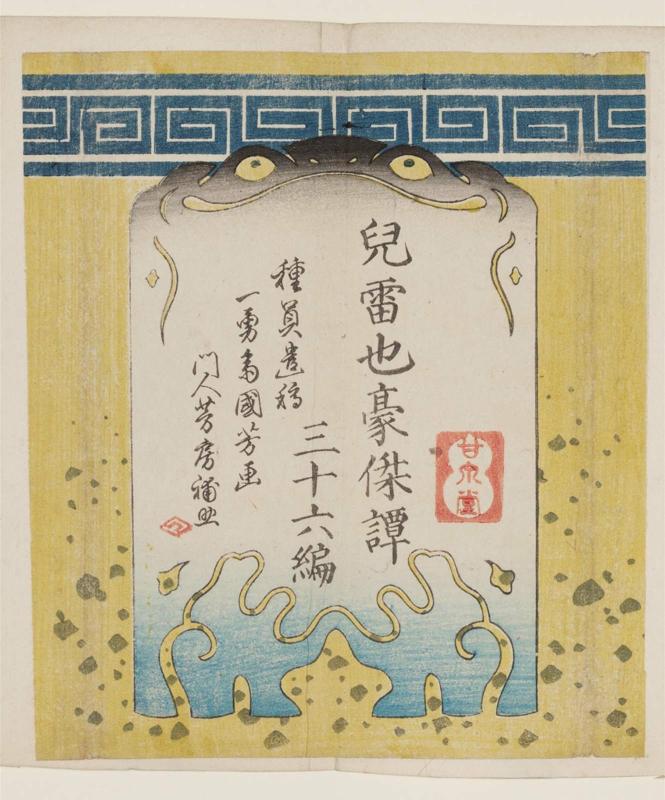 兒雷也豪傑譚
三十六編
種員遺稿
一勇斎國芳画
門人芳房補助
甘泉堂